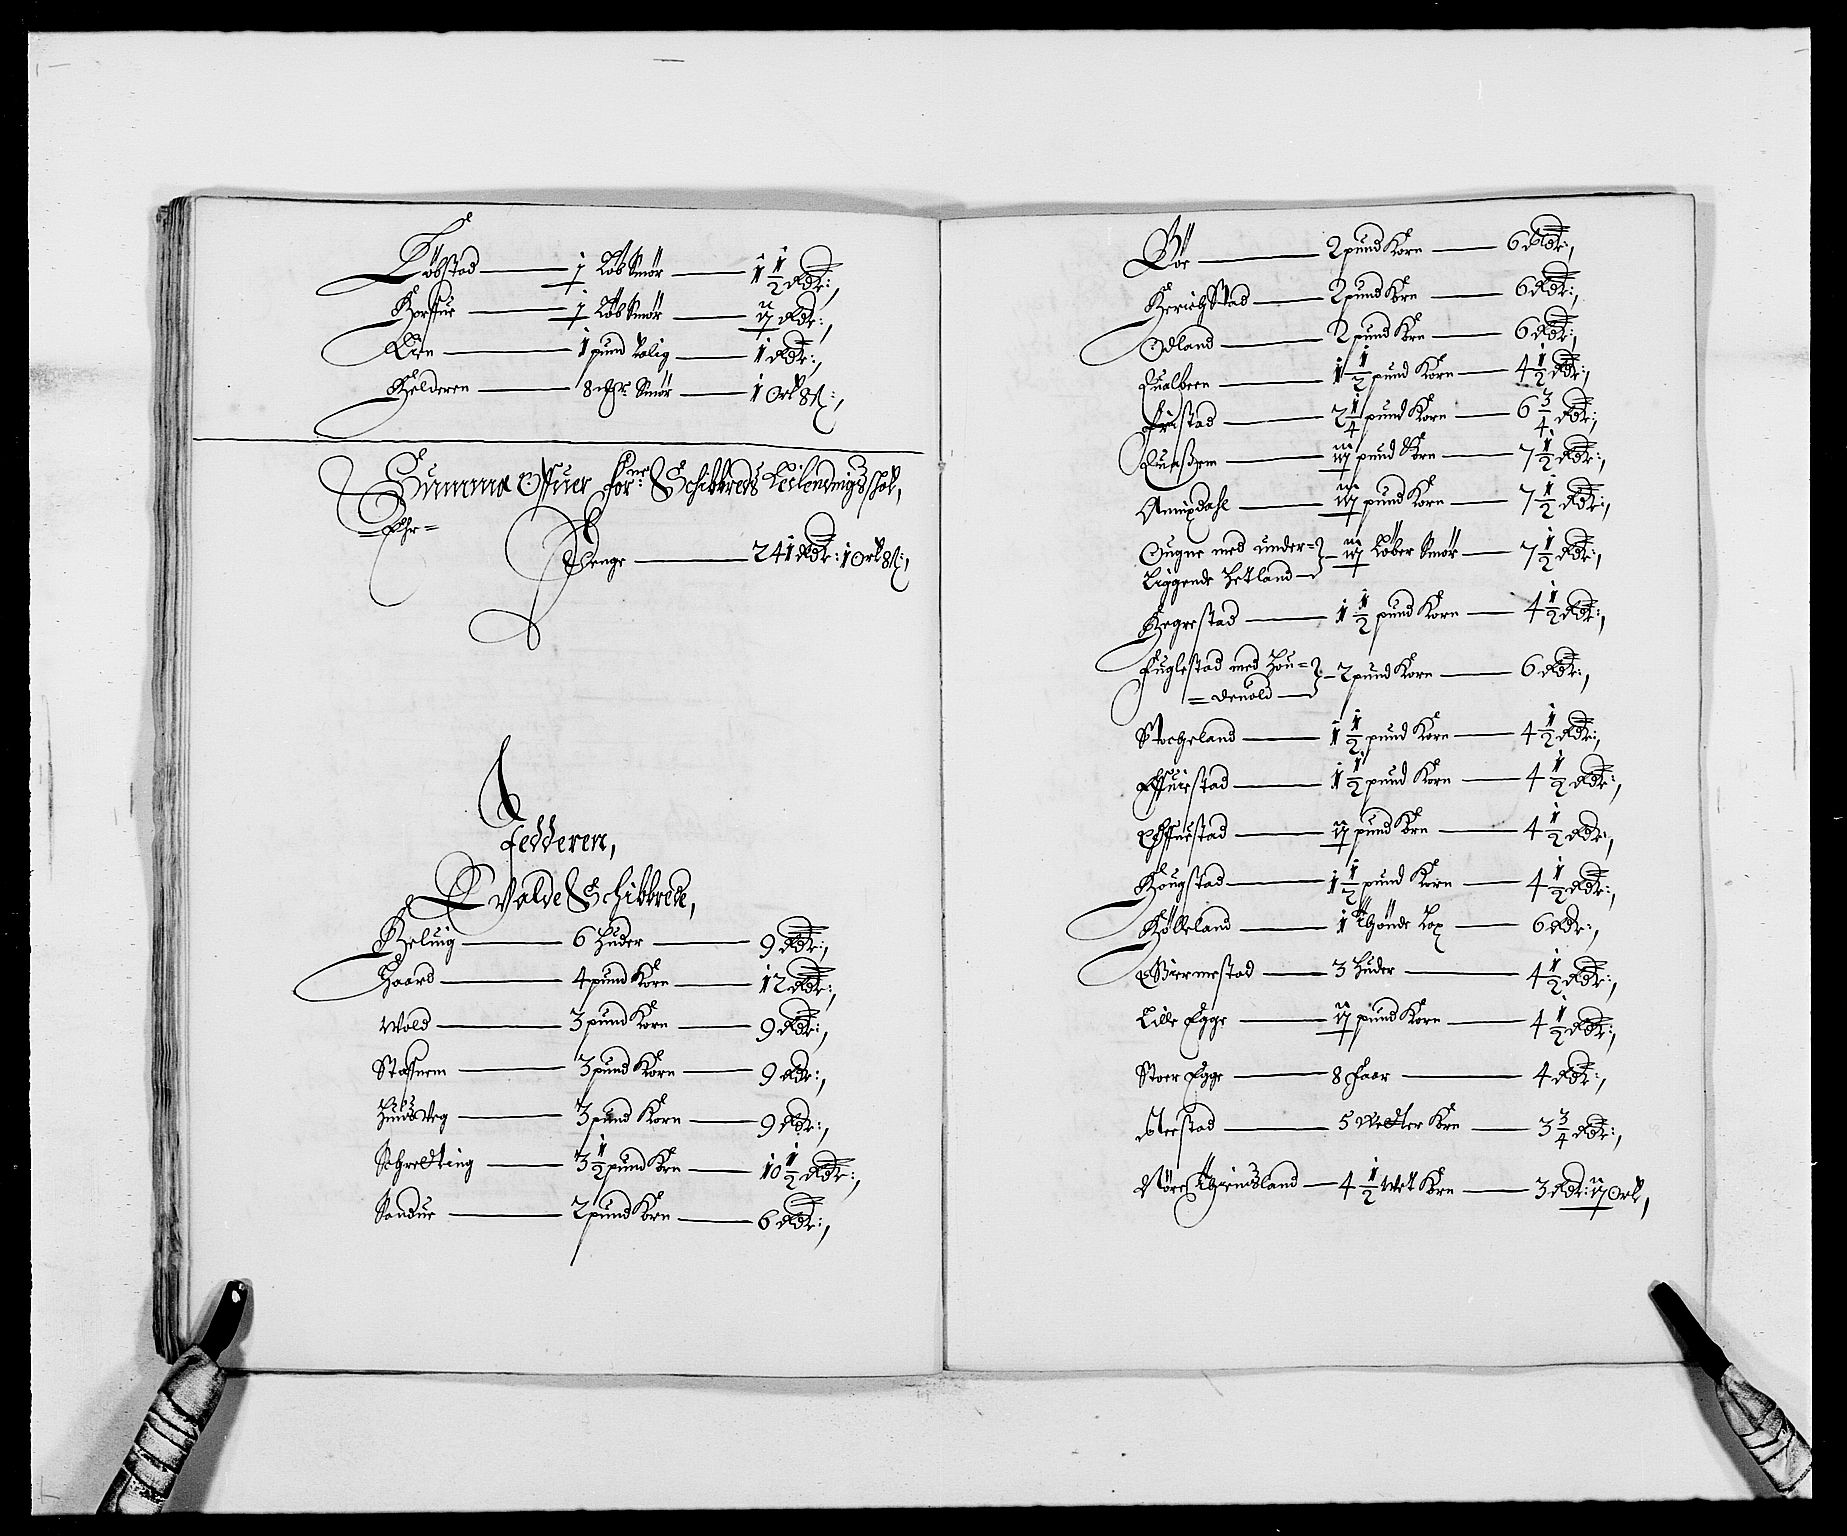 Tøbstad — ½ Løb Smør — 1 ½ Rdr:,
Hofsue — ½ Løb Smør — 1½ Rdr:,
Lien — 1 pund talig — 1 Rdr:,
Helderen — 8 mr: Smør — 1 Ort 8 s:,
Summa Offuer for:ne Schibbreds Leilendings schat,
Ehr=
Penge — 241 Rdr: 1 Ort 8 s:,
Jedderen,
Ovalde Schibbrede,
Heluig — 6 Huder — 9 Rdr:,
Haard — 4 pund Korn — 12 Rdr:,
Wold — 3 pund Korn — 9 Rdr:,
Stafnem — 3 pund Korn — 9 Rdr:,
Huusveg — 3 pund Korn — 9 Rdr:,
Schretting — 3 ½ pund Korn — 10 ½ Rdr:,
Sandue — 2 pund Korn — 6 Rdr:,
Bøe — 2 pund Korn — 6 Rdr:,
Herichstad — 2 pund Korn — 6 Rdr:,
Odland — 2 pund Korn — 6 Rdr:,
Qualbeen — 1 ½ pund Korn — 4 ½ Rdr:,
Friestad — 2 ¼ pund Korn — 6 ¾ Rdr:,
Quaßem — 2½ pund Korn — 7 ½ Rdr:,
Annixdahl — 2½ pund Korn — 7 ½ Rdr:,
Ougne med under=
liggende Hetland — 2½ Løber Smør — 7 ½ Rdr:,
Hegrestad — 1 ½ pund Korn — 4 ½ Rdr:,
Fuglestad med Hou=
=deuold — 2 pund Korn — 6 Rdr:,
Stocheland — 1 ½ pund Korn — 4 ½ Rdr:,
Effuiestad — 1 ½ pund Korn — 4 ½ Rdr:,
— 1½ pund Korn — 4 ½ Rdr:,
Hougstad — 1 ½ pund Korn — 4 ½ Rdr:,
Hølleland — 1 Thønde Lax — 6 Rdr:,
Biermestad — 3 Huder — 4 ½ Rdr:,
Lille Egge — 1½ pund Korn — 4 ½ Rdr:,
Stoer Egge — 8 Faar — 4 Rdr:,
— 5 Wetter Korn — 3 ¾ Rdr:,
Nøre Thuidsland — 4 ½ Wet Korn — 3 Rdr: 1½ Ort,